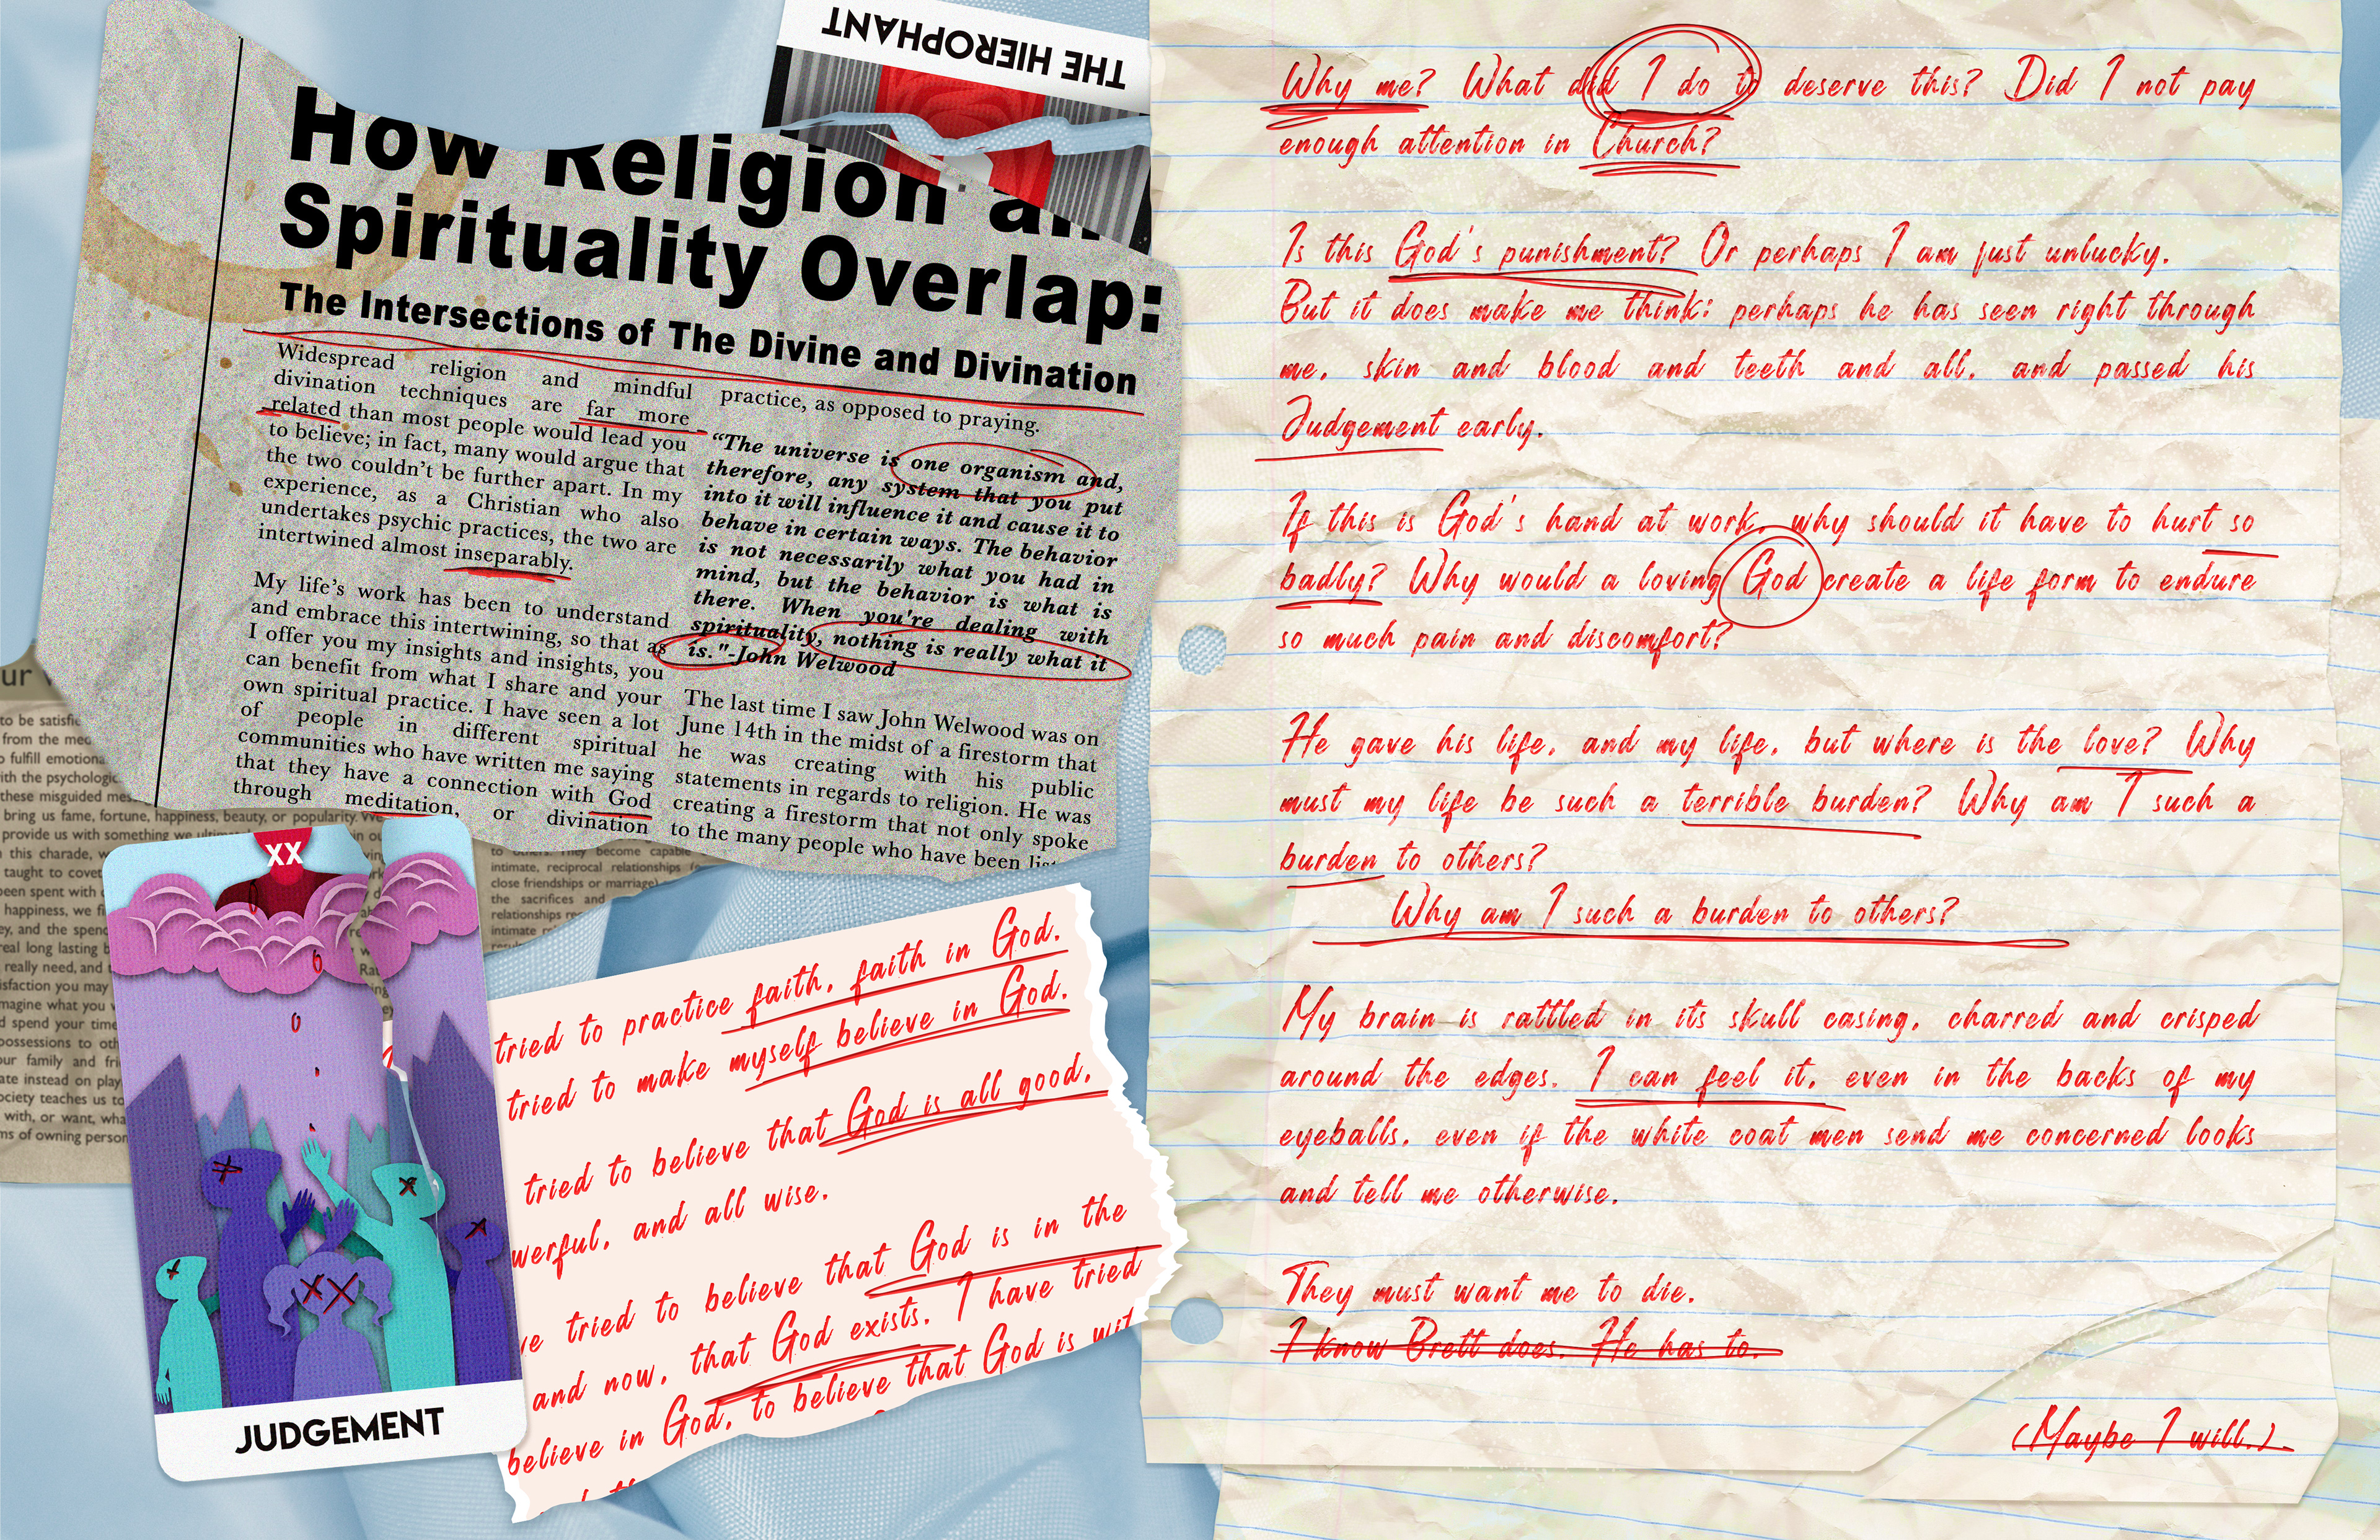 THE HIEROPHANT
How Religion an
Spirituality Overlap:
The Intersections of The Divine and Divination
Widespread religion and mindful
divination techniques are far more
related than most people would lead you
to believe; in fact, many would argue that
the two couldn't be further apart. In my
experience, as a Christian who also
undertakes psychic practices, the two are
intertwined almost inseparably.
My life's work has been to understand
and embrace this intertwining, so that as
I offer you my insights and insights, you
can benefit from what I share and your
own spiritual practice. I have seen a lot
of people in different spiritual
communities who have written me saying
that they have a connection with God
through meditation, or divination
practice, as opposed to praying.
“The universe is one organism and,
therefore, any system that you put
into it will influence it and cause it to
behave in certain ways. The behavior
is not necessarily what you had in
mind, but the behavior is what is
there. When you're dealing with
spirituality, nothing is really what it
is."-John Welwood
The last time I saw John Welwood was on
June 14th in the midst of a firestorm that
he was creating with his public
statements in regards to religion. He was
creating a firestorm that not only spoke
to the many people who have been
ur
to be satisfie
from the med
o fulfill emotiona
ith the psychologic
these misguided mes
bring us fame, fortune, happiness, beauty, or popularity. We
provide us with something we
this charade, w
taught to covet
been spent with
happiness, we fi
ey, and the spend
real long lasting b
really need, and
isfaction you may
magine what you
d spend your time
possessions to oth
our family and fri
ate instead on play
ociety teaches us to
with, or want, wha
ms of owning person
to others. They become capable
intimate, reciprocal relationships
close friendships or marriage)
the sacrifices and
relationships
intimate
XX
JUDGEMENT
tried to practice faith, faith in God.
tried to make myself believe in God.
tried to believe that God is all good,
werful, and all wise.
ve tried to believe that God is in the
and now, that God exists. I have tried
believe in God, to believe that God is wit
Why me? What did I do to deserve this? Did I not pay
enough attention in Church?
Is this God's punishment? Or perhaps I am just unlucky.
But it does make me think: perhaps he has seen right through
me, skin and blood and teeth and all, and passed his
Judgement early.
If this is God's hand at work, why should it have to hurt so
badly? Why would a loving God create a life form to endure
so much pain and discomfort?
He gave his life, and my life, but where is the love? Why
must my life be such a terrible burden? Why am I such a
burden to others?
Why am I such a burden to others?
My brain is rattled in its skull casing, charred and crisped
around the edges. I can feel it, even in the backs of my
eyeballs, even if the white coat men send me concerned looks
and tell me otherwise.
They must want me to die.
I know Brett does. He has to.
(Maybe I will.)